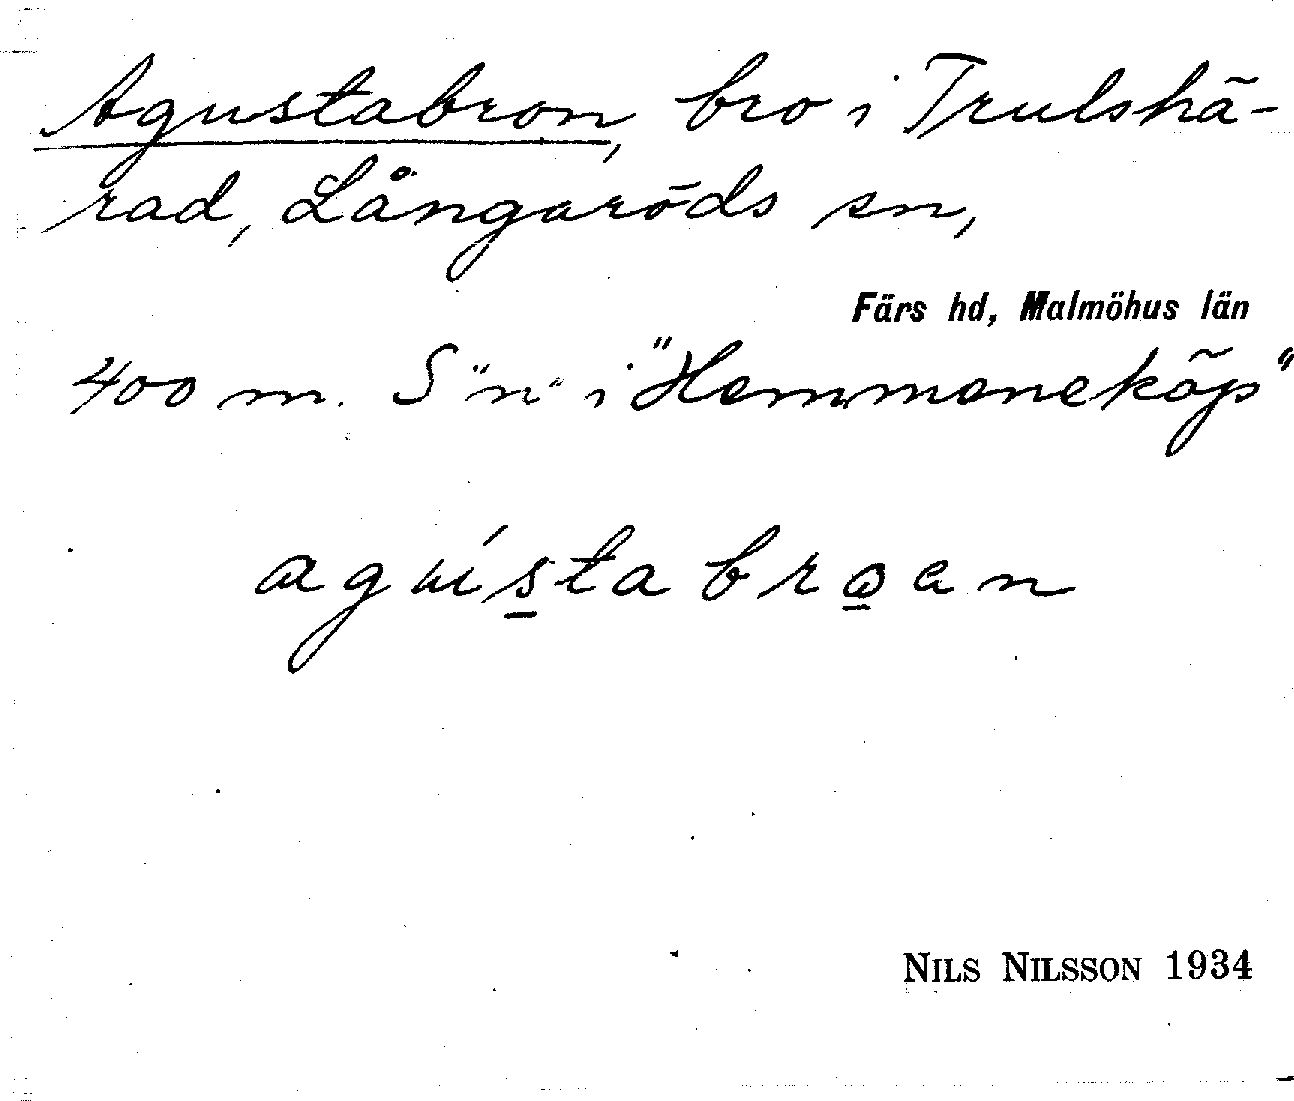 Agustabron, bro i Trulshä-
rad, Långaröds sn,
Färs hd, Malmöhus län
400 m. S "n" i "Hemmeneköp"
agústabroen
NILS NILSSON 1934